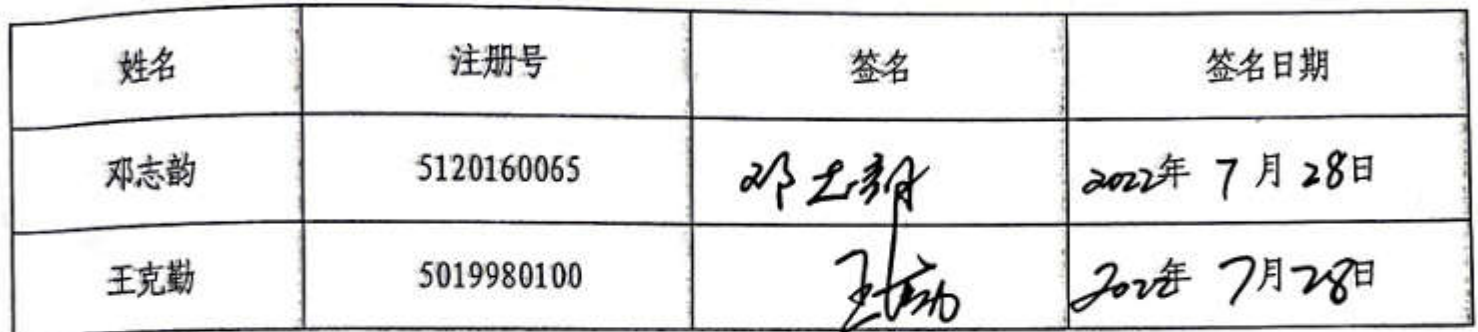 姓名 注册号 签名 签名日期
邓志韵 5120160065 邓志韵 2022年 7月 28日
王克勤 5019980100 王克勤 2022年 7月28日